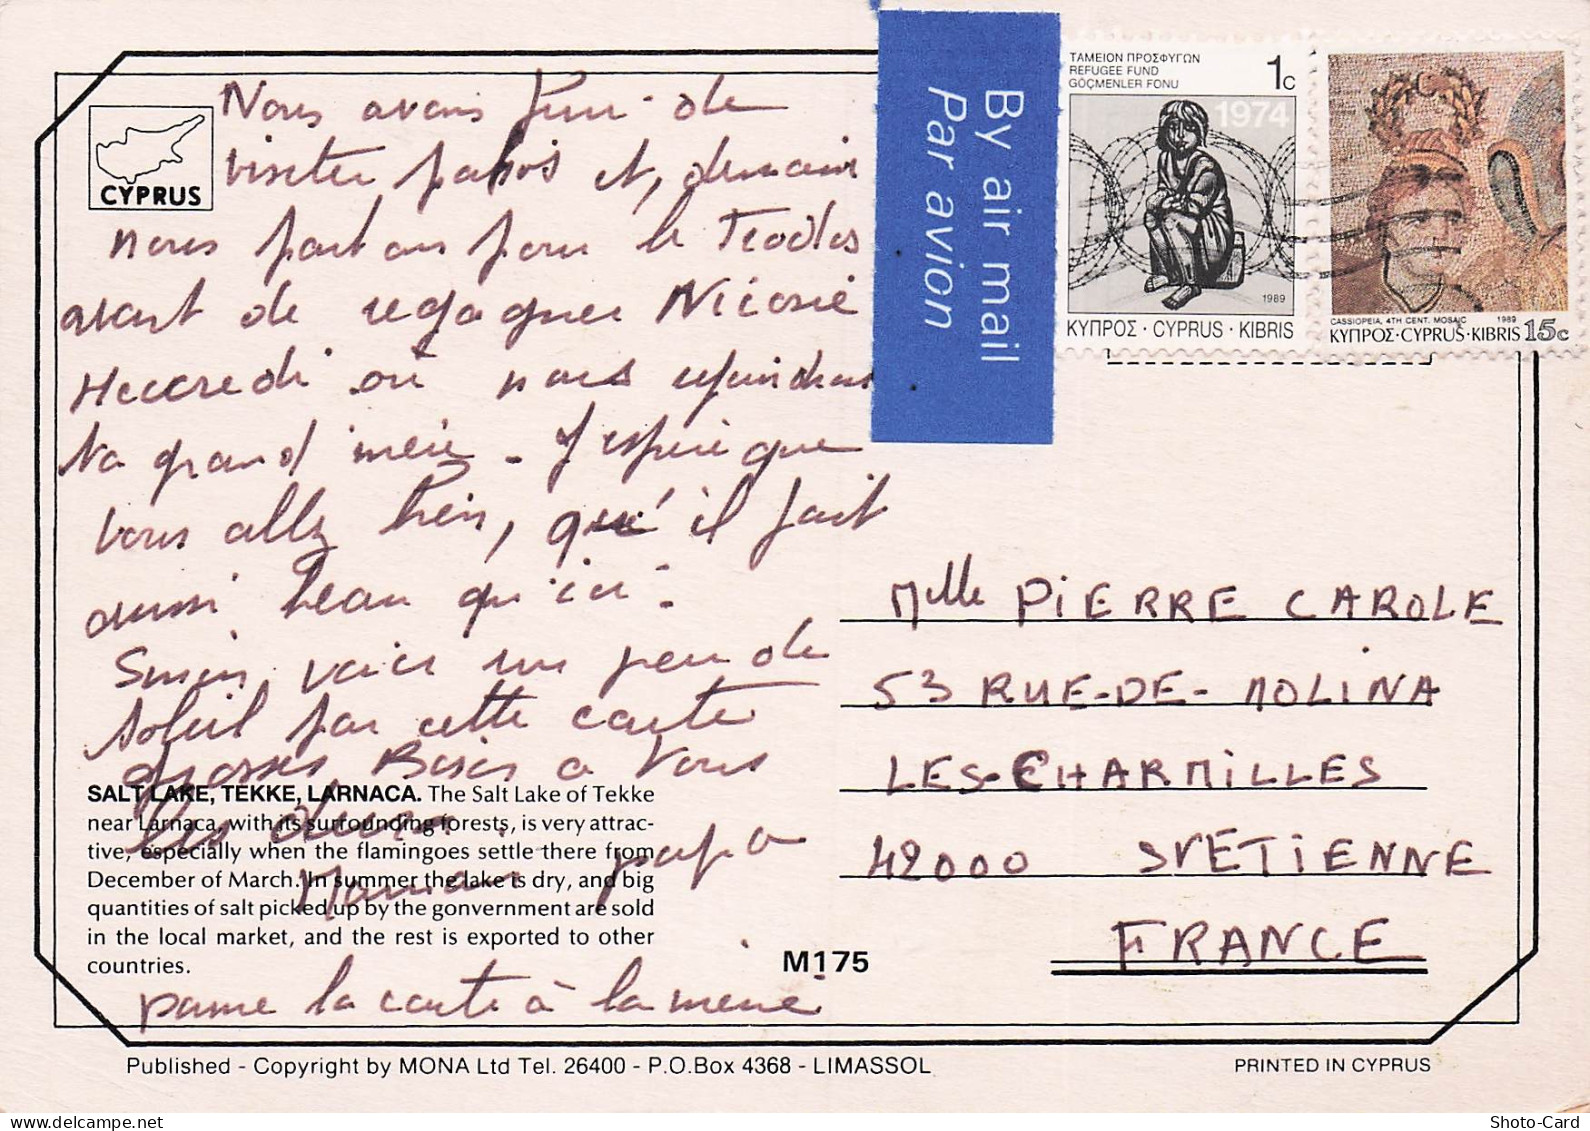 CYPRUS
Nous avons fini de
visiter paphos et, demain
nous partons pour le Troodos
avant de regagner Nicosie
Mercredi où nous rejoindrons
ta grand'mère. J'espère que
vous allez bien, qu'il fait
aussi beau qu'ici.
Sinon, voici un peu de
soleil par cette carte
grosses Bises à vous
les deux
Maman papa
passe la carte à la mémé
SALT LAKE, TEKKE, LARNACA. The Salt Lake of Tekke
near Larnaca, with its surrounding forests, is very attrac-
tive, especially when the flamingoes settle there from
December of March. In summer the lake is dry, and big
quantities of salt picked up by the gonvernment are sold
in the local market, and the rest is exported to other
countries.
M175
By air mail
Par avion
ΤΑΜΕΙΟΝ ΠΡΟΣΦΥΓΩΝ
REFUGEE FUND
GÖÇMENLER FONU
1c
1974
1989
ΚΥΠΡΟΣ · CYPRUS · KIBRIS
CASSIOPEIA, 4TH CENT. MOSAIC 1989
ΚΥΠΡΟΣ·CYPRUS·KIBRIS 15c
Mlle PIERRE CAROLE
53 RUE-DE-MOLINA
LES-CHARMILLES
42000 ST ETIENNE
FRANCE
Published - Copyright by MONA Ltd Tel. 26400 - P.O.Box 4368 - LIMASSOL
PRINTED IN CYPRUS
www.delcampe.net
Shoto-Card